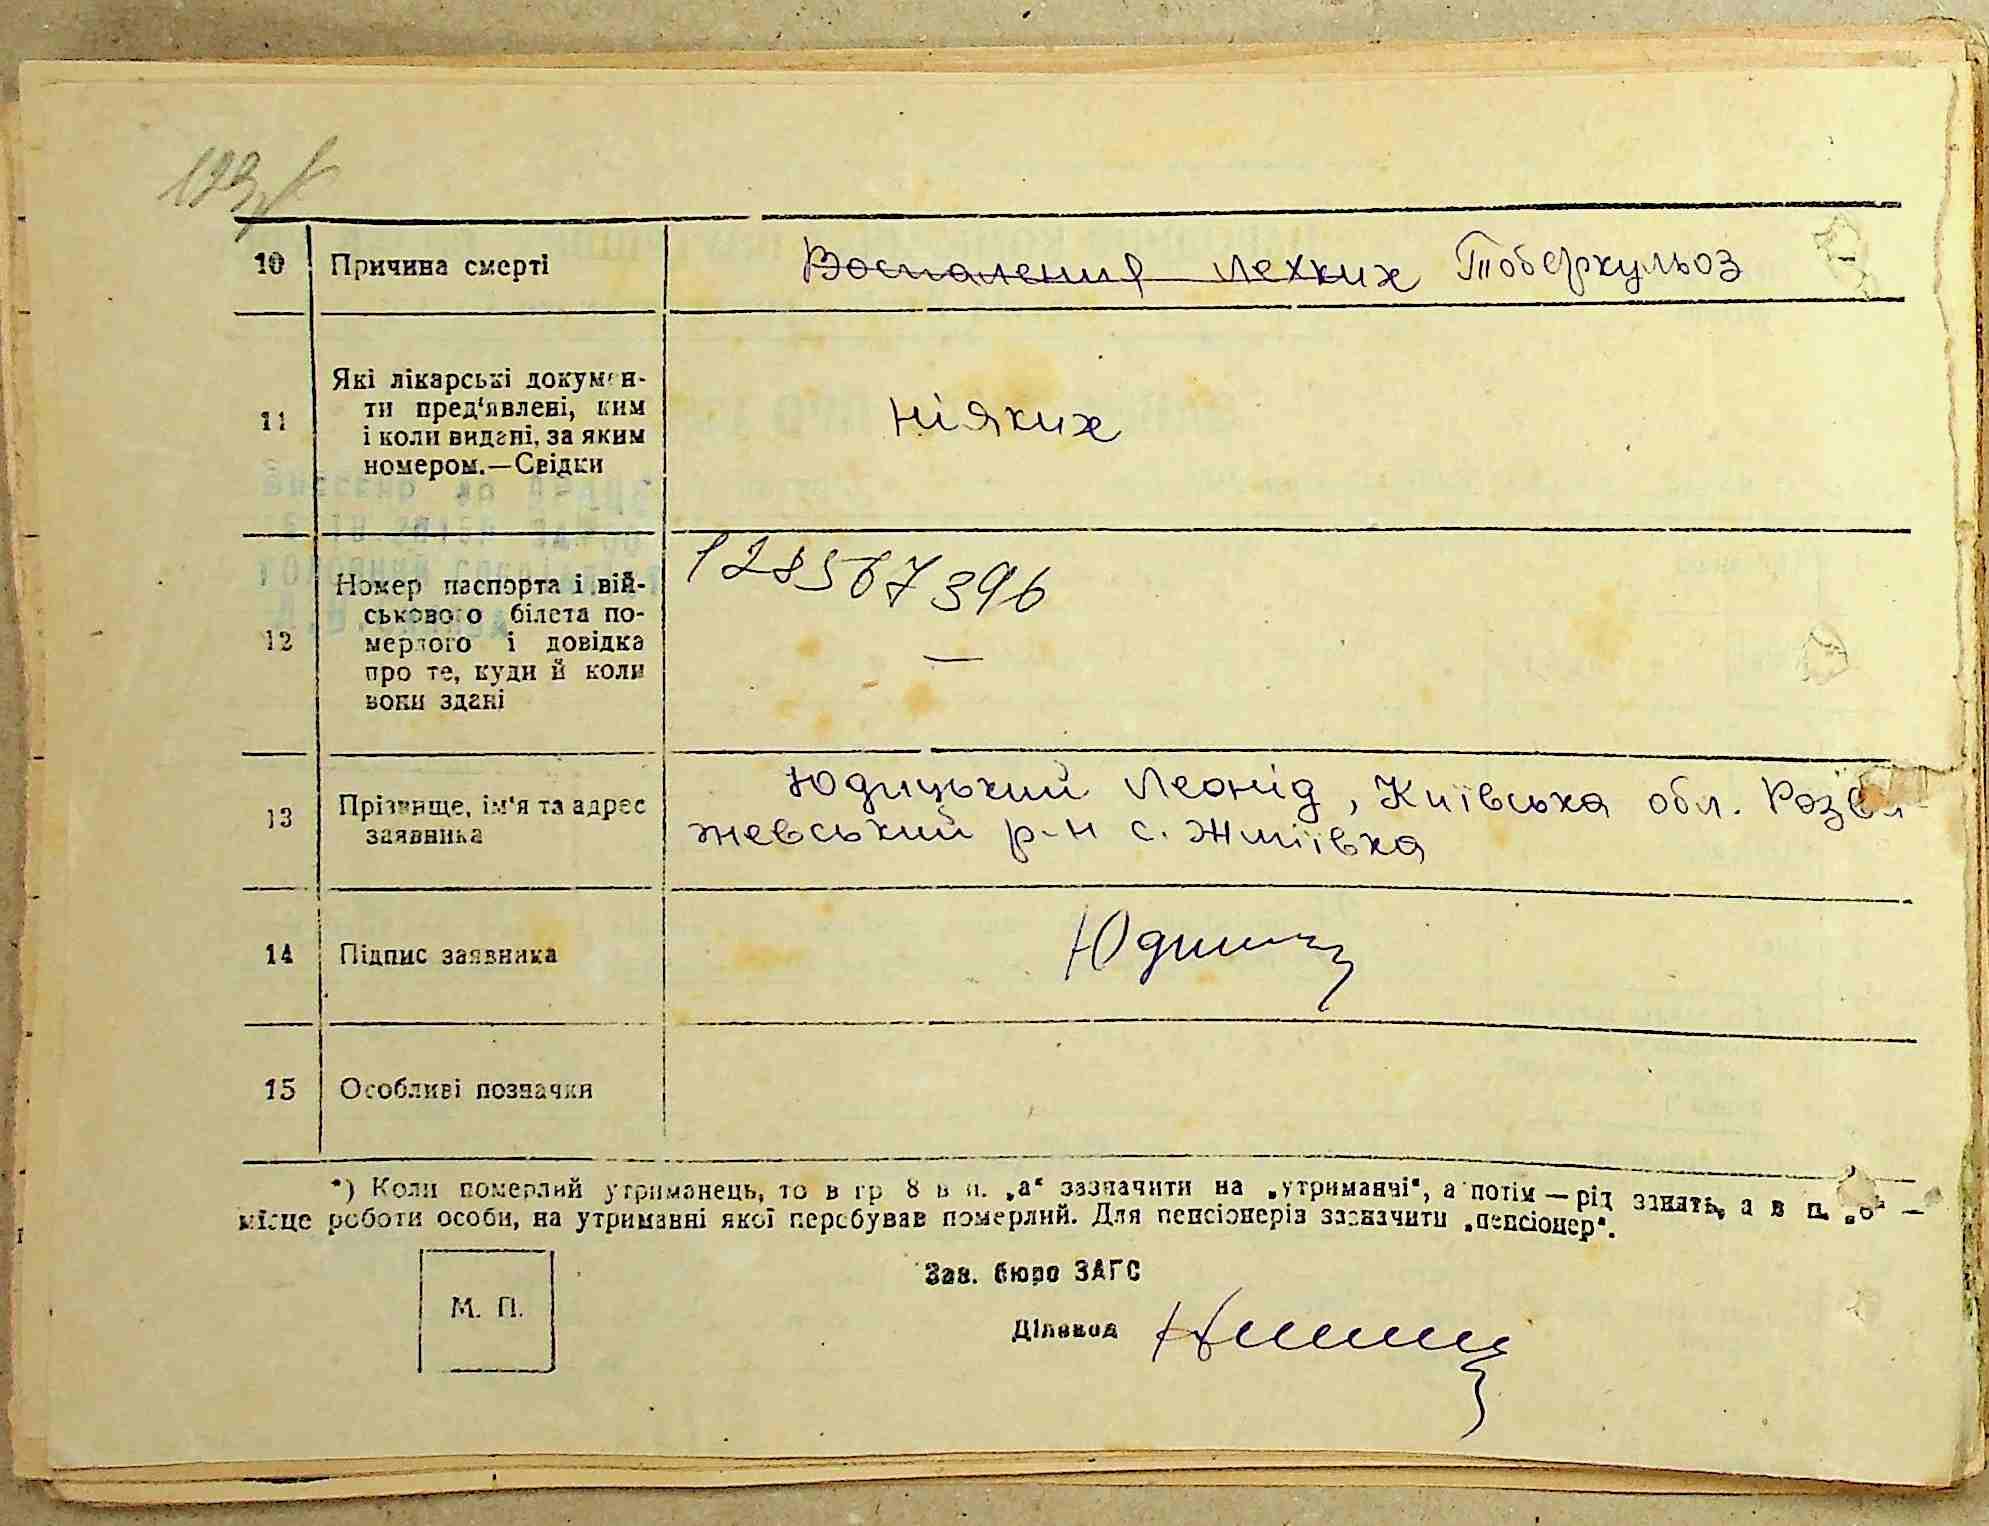 10 Причина смерті Воспаления лехких Тоберкульоз
11 Які лікарські докумен-
ти пред'явлені, ким
і коли видані, за яким
номером.—Свідки
ніяких
12 Номер паспорта і вій-
ськового білета по-
мерлого і довідка
про те, куди й коли
вони здані
128567396
—
13 Прізвище, ім'я та адрес
заявника
Юдицький Леонід, Київська обл. Розва-
жевський р-н с. Жміївка
14 Підпис заявника
15 Особливі позначки
*) Коли померлий утриманець, то в гр 8 в п. „а“ зазначити на „утриманчі“, а потім — рід занять, а в п. „б“ —
місце роботи особи, на утриманні якої перебував померлий. Для пенсіонерів зазначити „пенсіонер“.
Зав. бюро ЗАГС
М. П.
Діловод